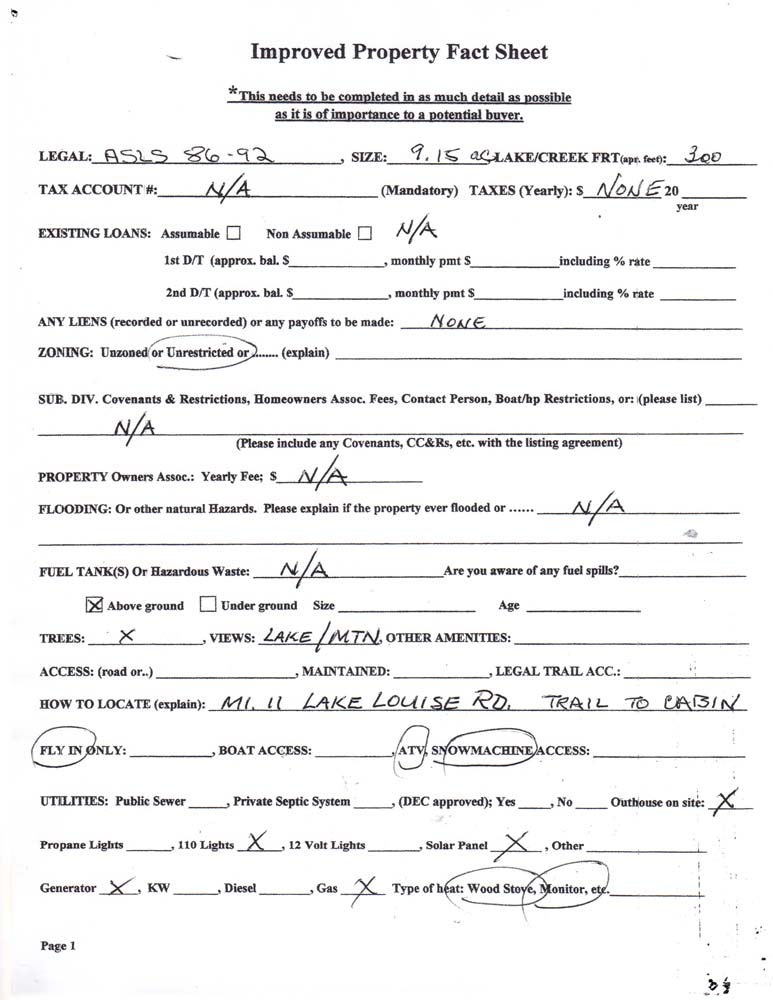 Improved Property Fact Sheet
*This needs to be completed in as much detail as possible
as it is of importance to a potential buyer.
LEGAL: ASLS 86-92, SIZE: 9.15 ac, LAKE/CREEK FRT(apr. feet): 300
TAX ACCOUNT #: N/A (Mandatory) TAXES (Yearly): $ NONE 20____
year
EXISTING LOANS: Assumable ☐ Non Assumable ☐ N/A
1st D/T (approx. bal. $____, monthly pmt $____including % rate ____
2nd D/T (approx. bal. $____, monthly pmt $____including % rate ____
ANY LIENS (recorded or unrecorded) or any payoffs to be made: NONE
ZONING: Unzoned or Unrestricted or ....... (explain) ____
SUB. DIV. Covenants & Restrictions, Homeowners Assoc. Fees, Contact Person, Boat/hp Restrictions, or: (please list) ____
N/A
(Please include any Covenants, CC&Rs, etc. with the listing agreement)
PROPERTY Owners Assoc.: Yearly Fee; $ N/A
FLOODING: Or other natural Hazards. Please explain if the property ever flooded or ...... N/A
FUEL TANK(S) Or Hazardous Waste: N/A Are you aware of any fuel spills?____
☒ Above ground ☐ Under ground Size ____ Age ____
TREES: X, VIEWS: LAKE/MTN, OTHER AMENITIES: ____
ACCESS: (road or..) ____, MAINTAINED: ____, LEGAL TRAIL ACC.: ____
HOW TO LOCATE (explain): MI. 11 LAKE LOUISE RD. TRAIL TO CABIN
FLY IN ONLY: ____, BOAT ACCESS: ____, ATV, SNOWMACHINE ACCESS: ____
UTILITIES: Public Sewer ____, Private Septic System ____, (DEC approved); Yes ____, No ____ Outhouse on site: X
Propane Lights ____, 110 Lights X, 12 Volt Lights ____, Solar Panel X, Other ____
Generator X, KW ____, Diesel ____, Gas X Type of heat: Wood Stove, Monitor, etc.____
Page 1